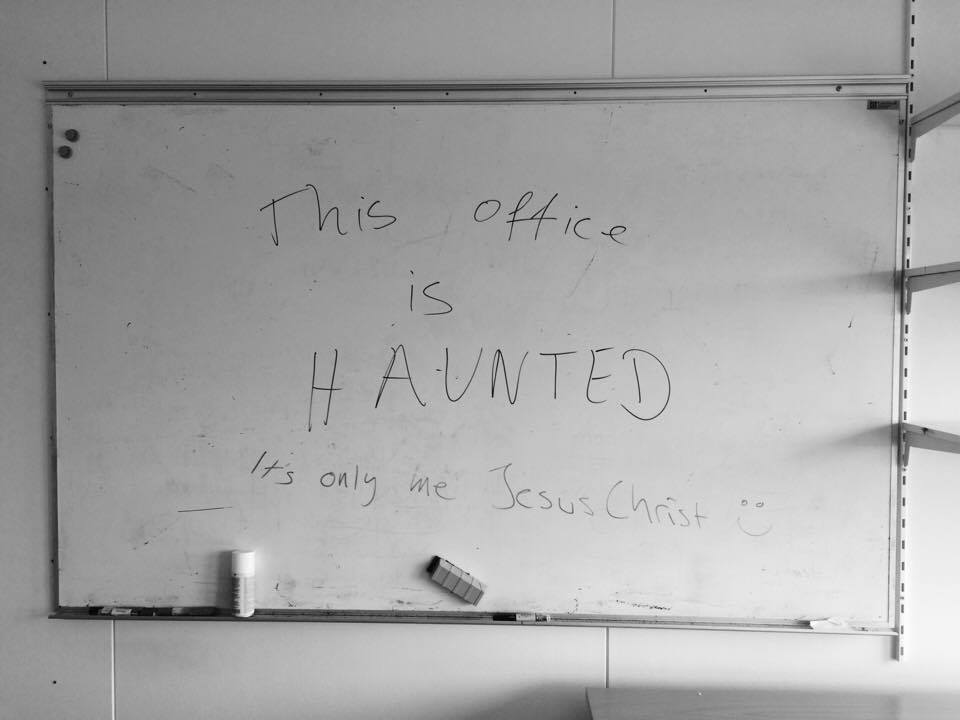 This office
is
HAUNTED
It's only me Jesus Christ